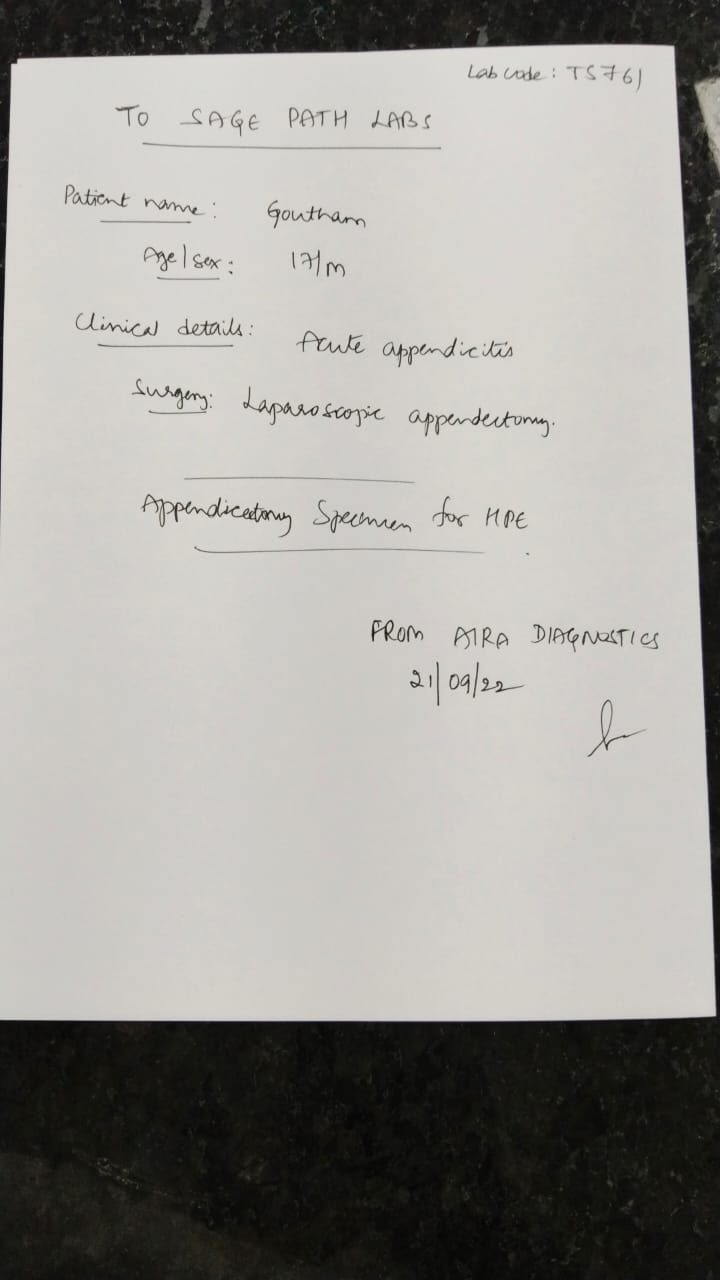 Lab code: TS761
TO SAGE PATH LABS
Patient name: Goutham
Age/sex: 17/m
Clinical details: Acute appendicitis
Surgery: Laparoscopic appendectomy.
Appendicectomy Specimen for HPE.
FROM AIRA DIAGNOSTICS
21/09/22